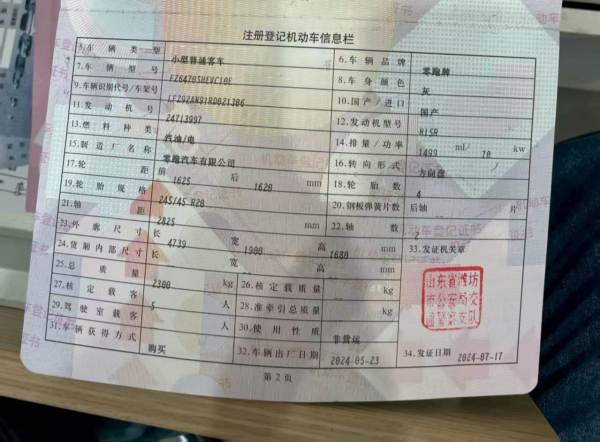 注册登记机动车信息栏
5.车辆类型 小型普通客车 6.车辆品牌 零跑牌
7.车辆型号 FZ6470SHEVC10E 8.车身颜色 灰
9.车辆识别代号/车架号 10.国产/进口 国产
11.发动机号 24713997 12.发动机型号 H15R
13.燃料种类 汽油/电 14.排量/功率 1499 ml/ 70 kw
15.制造厂名称 零跑汽车有限公司 16.转向形式 方向盘
17.轮距 前 1625 后 1620 mm 18.轮胎数 4
19.轮胎规格 245/45 R20 20.钢板弹簧片数 后轴 片
21.轴距 2825 mm 22.轴数 2
23.外廓尺寸 长 4739 宽 1900 高 1680 mm 33.发证机关章
24.货厢内部尺寸 长 宽 高 mm
25.总质量 2300 kg 26.核定载质量 kg
27.核定载客 5 人 28.准牵引总质量 kg
29.驾驶室载客 人 30.使用性质 非营运
31.车辆获得方式 购买 32.车辆出厂日期 2024-05-23 34.发证日期 2024-07-17
山东省潍坊
市公安局交
通警察支队
第2页